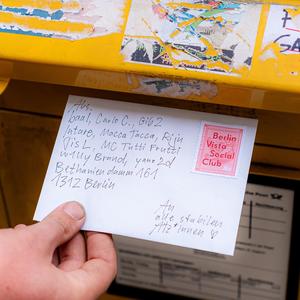 An,
baal, Carlo C., G162
Intare, Mocca Tacca, Rijn
Jis L., MC Tutti Frutti
willy Brand, yanc2d
Bethaniendamm 161
1312 Berlin
Berlin
Vista
Social
Club
An
alle stabilen
Atz*innen ♡